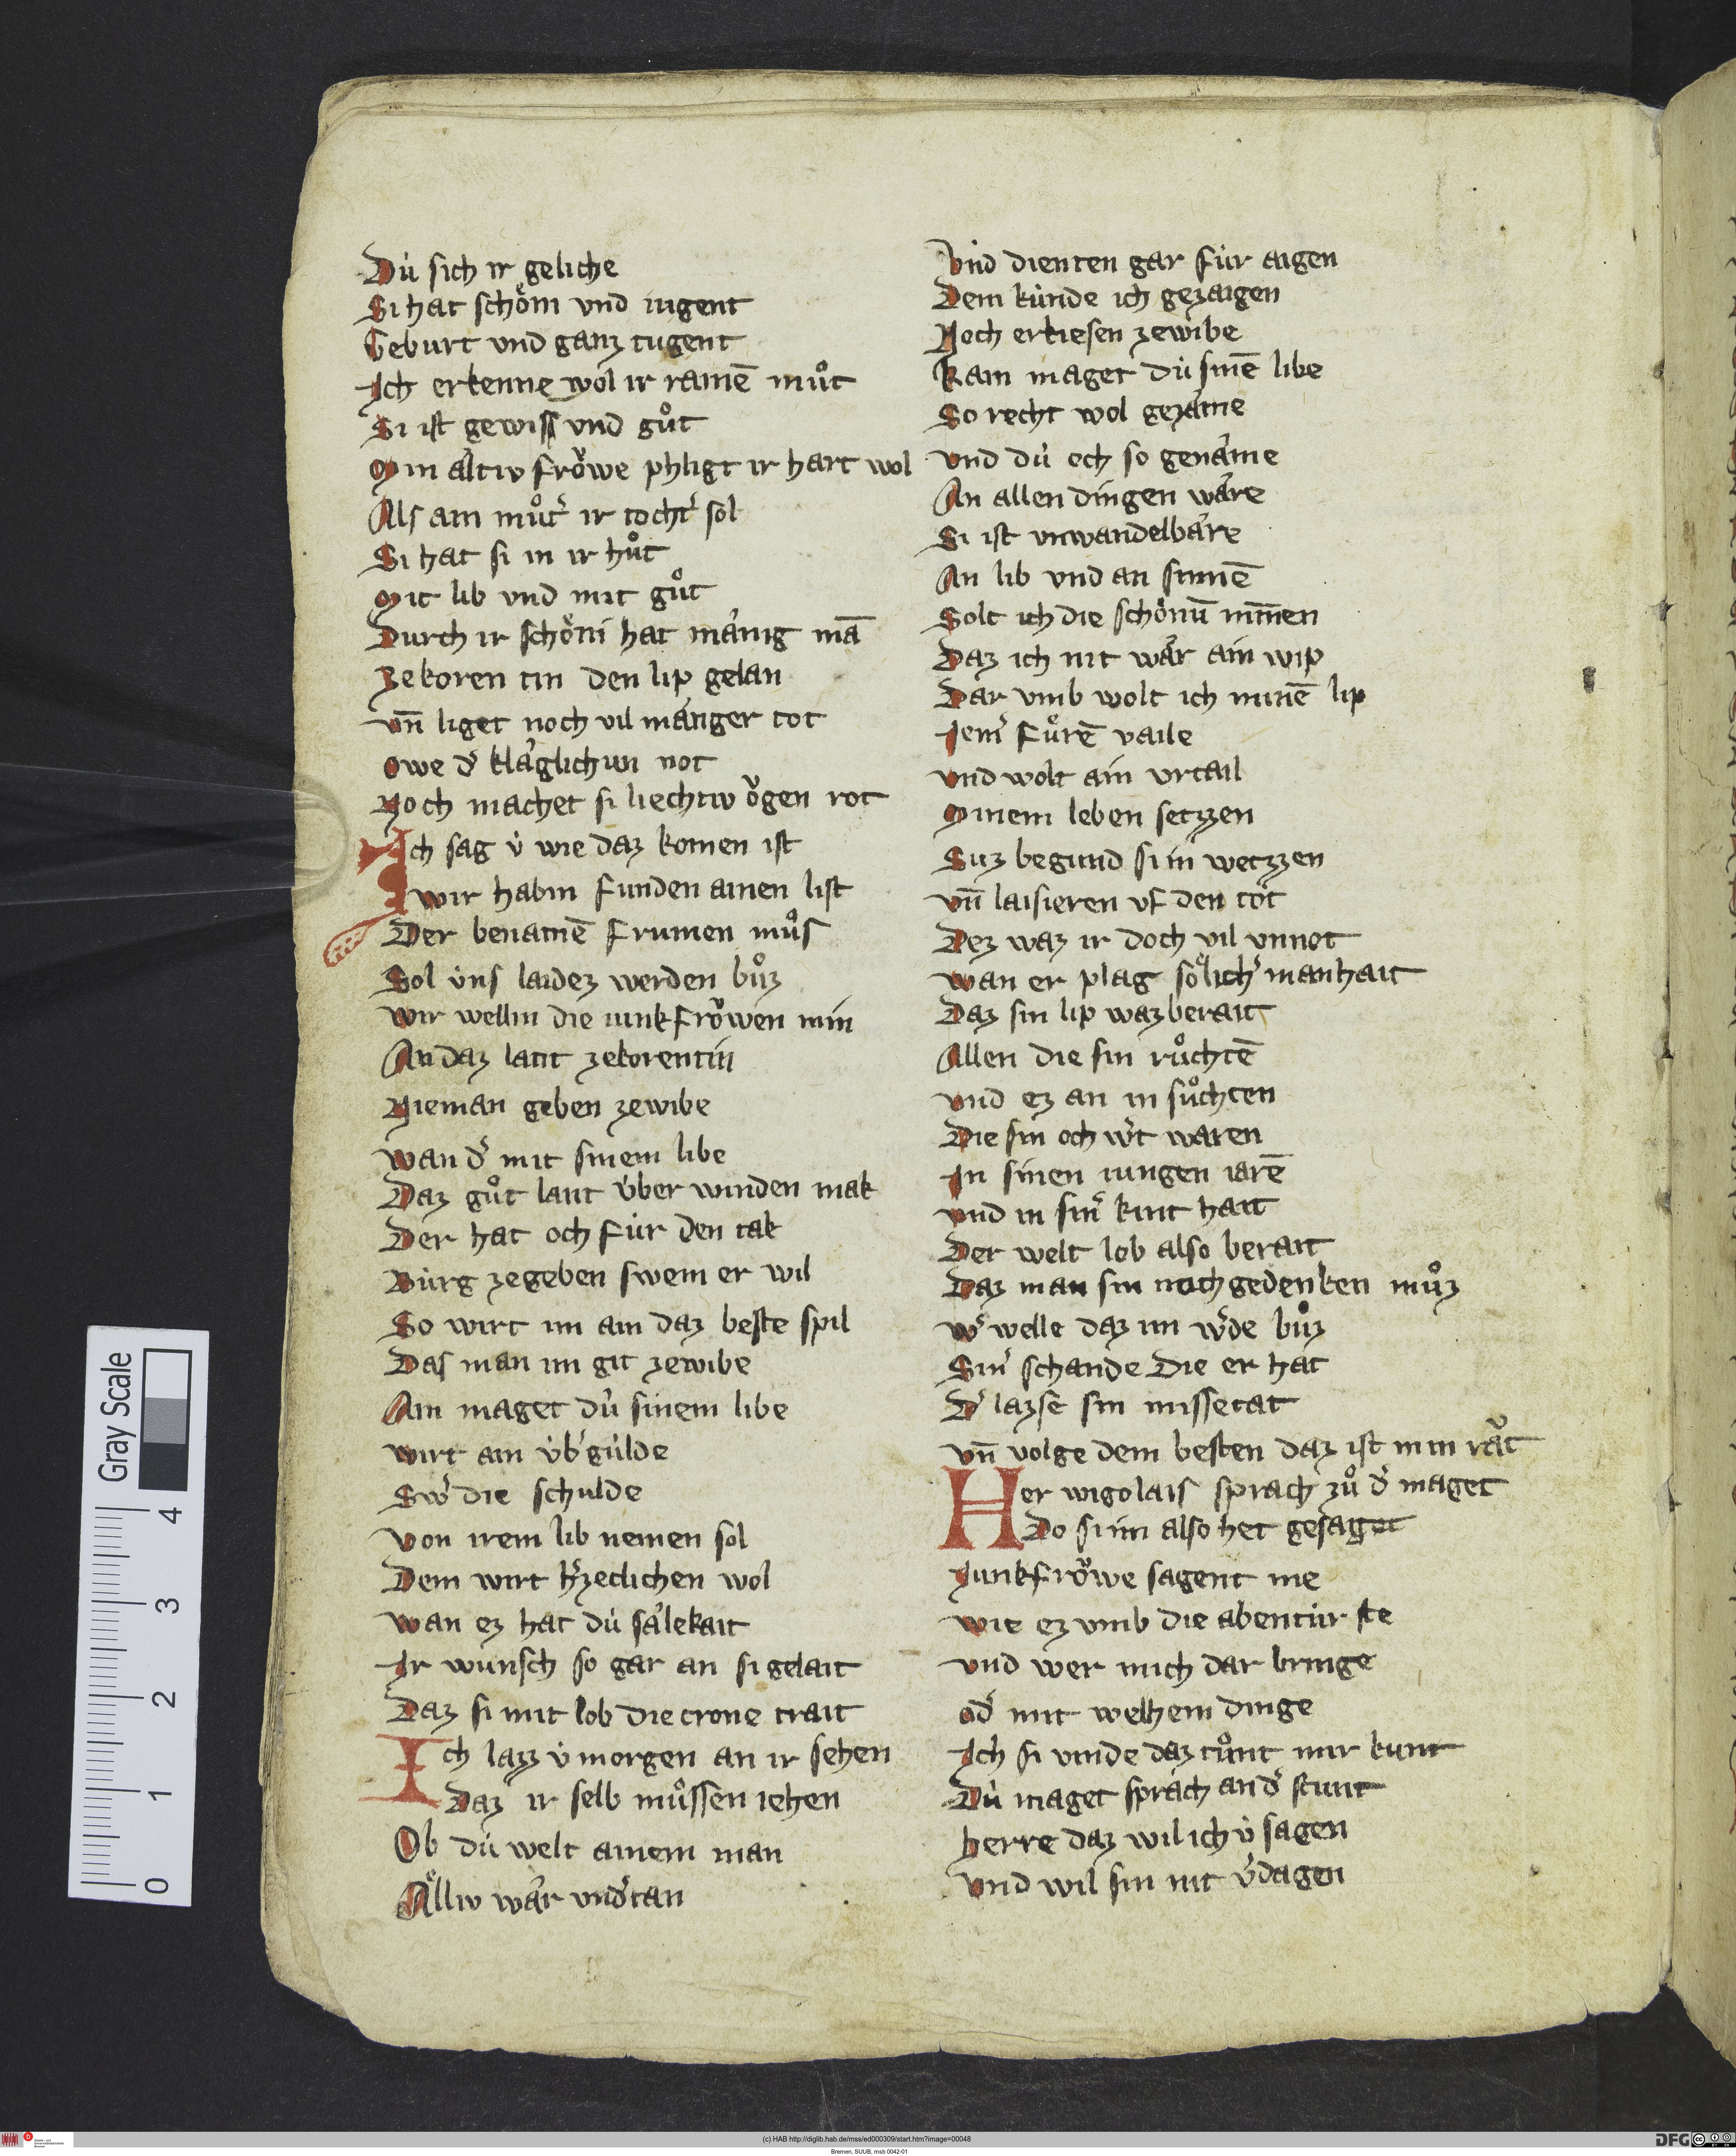 Dú sich ir geliche
Si hat schoͤni vnd iugent
Geburt vnd ganz tugent
Ich erkenne wol ir rainē muͦt
Si ist gewiss vnd guͦt
Min altiv froͮwe phligt ir hart wol
Als ain muͦt͛ ir tocht͛ sol
Si hat si in ir huͦt
Mit lib vnd mit guͦt
Durch ir schoͤni hat maͤnig mā
Zekoren tin den lip gelan
vn̄ liget noch vil maͤnger tot
Owe d͛ klaͤglichun not
Noch machet si liechtiv oͮgen rot
Ich sag v́ wie daz komen ist
wir habin funden ainen list
Der benamē frumen muͦs
Sol v́ns laidez werden buͦz
Wir wellin die iunkfroͮwen min
An daz lant zekorentin
Nieman geben zewibe
Wan d͛ mit sinem libe
Daz guͦt lant v́ber winden mak
Der hat och fúr den tak
Búrg zegeben swem er wil
So wirt im ain daz beste spil
Das man im git zewibe
Ain maget dú sinem libe
wirt ain v́b͛gúlde
Sw͛ die schulde
Von irem lib nemen sol
Dem wirt h͛zeclichen wol
Wan ez hat dú saͤlekait
Ir wunsch so gar an si gelait
Daz si mit lob die crone trait
Ich lazz v́ morgen an ir sehen
Daz ir selb muͦssen iehen
Ob dú welt ainem man
Aͤlliv waͤr vnd͛tan
Vnd dienten gar fúr aigen
Dem kúnde ich gezaigen
Noch erkiesen zewibe
Kain maget dú sinē libe
So recht wol gezaͤme
Vnd dú och so genaͤme
An allen dingen waͤre
Si ist vnwandelbaͤre
An lib vnd an sinnē
Solt ich die schoͤnū minnen
Daz ich nit waͤr ain wip
Dar vmb wolt ich minē lip
Iem͛ fuͤrē vaile
Vnd wolt ain vrtail
Minem leben setzzen
Suz begund si in wetzzen
Vn̄ laisieren vf den tot
Dez waz ir doch vil vnnot
Wan er plag soͤlich͛ manhait
Daz sin lip waz berait
Allen die sin ruͦchtē
Vnd ez an in suͦchten
Die sin och w͛t waren
In sinen iungen iarē
Vnd in sin͛ kint hait
Der welt lob also berait
Daz man sin noch gedenken muͦz
W͛ welle daz im w͛de buͦz
Sin͛ schande die er hat
D͛ lazse sin missetat
Vn̄ volge dem besten daz ist min rat
Her wigolais sprach zuͦ d͛ maget
Do si im also het gesaget
Iunkfroͮwe sagent me
Wie ez vmb die abentúr ste
Vnd wer mich dar bringe
Od͛ mit welhem dinge
Ich si vinde daz tuͦnt mir kunt
Dú maget sprach an d͛ stunt
Herre daz wil ich v́ sagen
Vnd wil sin nit v͛dagen
Gray Scale
4
3
2
1
0
(c) HAB http://diglib.hab.de/mss/ed000309/start.htm?image=00048
Bremen, SUUB, msb 0042-01
DFG